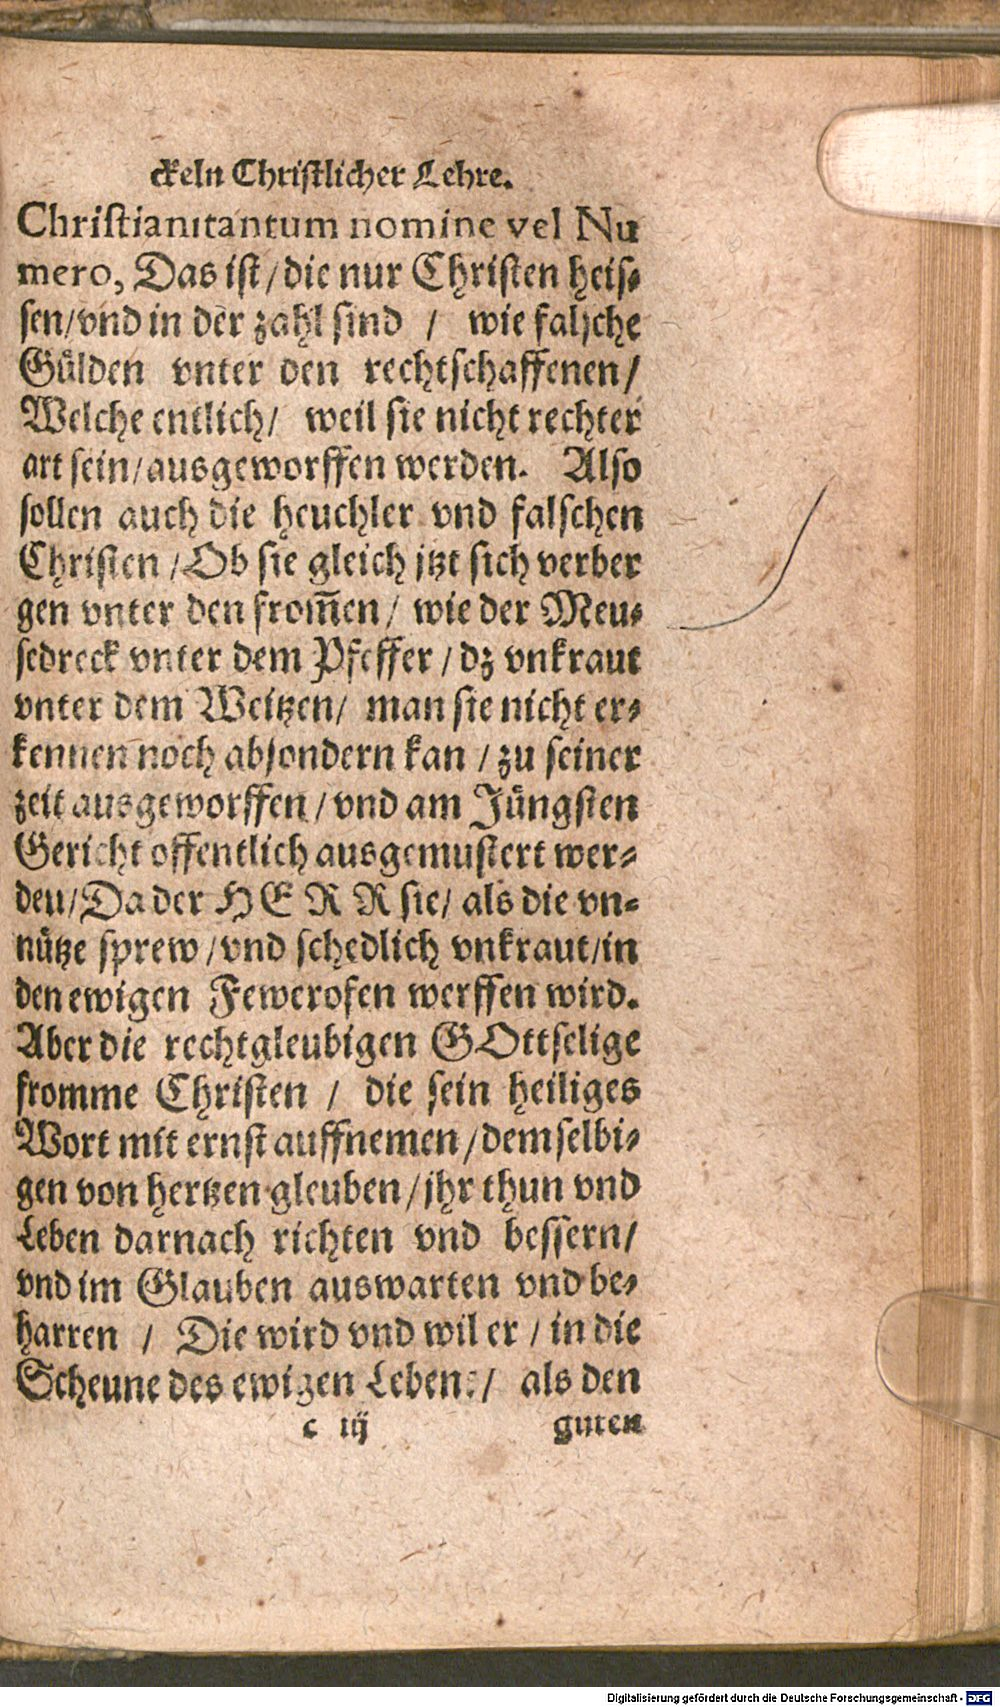 ckeln Christlicher Lehre.
Christianitantum nomine vel Nu
mero, Das ist / die nur Christen heis-
sen/vnd in der zahl sind / wie falsche
Gülden vnter den rechtschaffenen/
Welche entlich/ weil sie nicht rechter
art sein/ausgeworffen werden. Also
sollen auch die heuchler vnd falschen
Christen /Ob sie gleich jtzt sich verber
gen vnter den from̃en/ wie der Meu-
sedreck vnter dem Pfeffer / dz vnkraut
vnter dem Weitzen/ man sie nicht er-
kennen noch absondern kan / zu seiner
zeit ausgeworffen / vnd am Jüngsten
Gericht offentlich ausgemustert wer-
den/Da der HERR sie/ als die vn-
nütze sprew /vnd schedlich vnkraut/in
den ewigen Fewerofen werffen wird.
Aber die rechtgleubigen GOttselige
fromme Christen / die sein heiliges
Wort mit ernst auffnemen /demselbi-
gen von hertzen gleuben/jhr thun vnd
Leben darnach richten vnd bessern/
vnd im Glauben auswarten vnd be-
harren / Die wird vnd wil er / in die
Scheune des ewigen Lebens/ als den
c iij guten
Digitalisierung gefördert durch die Deutsche Forschungsgemeinschaft - DFG